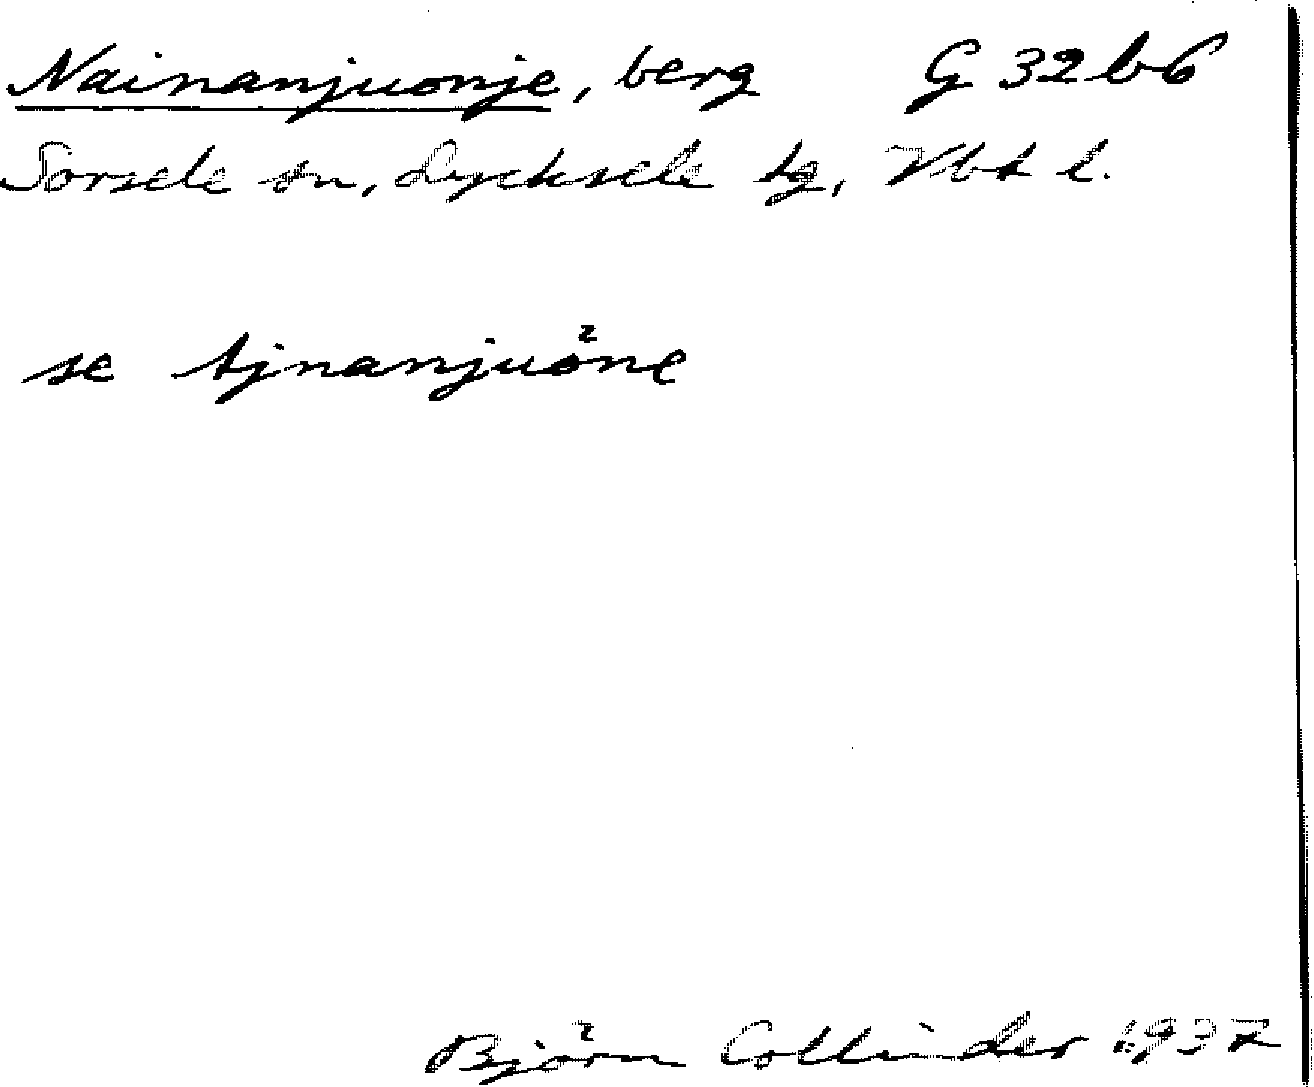 Nainanjuonje, berg G 32 b 6
Sorsele sn, Lycksele tg, Vbt l.
se Ajnanjuöne
Björn Collinder 1937